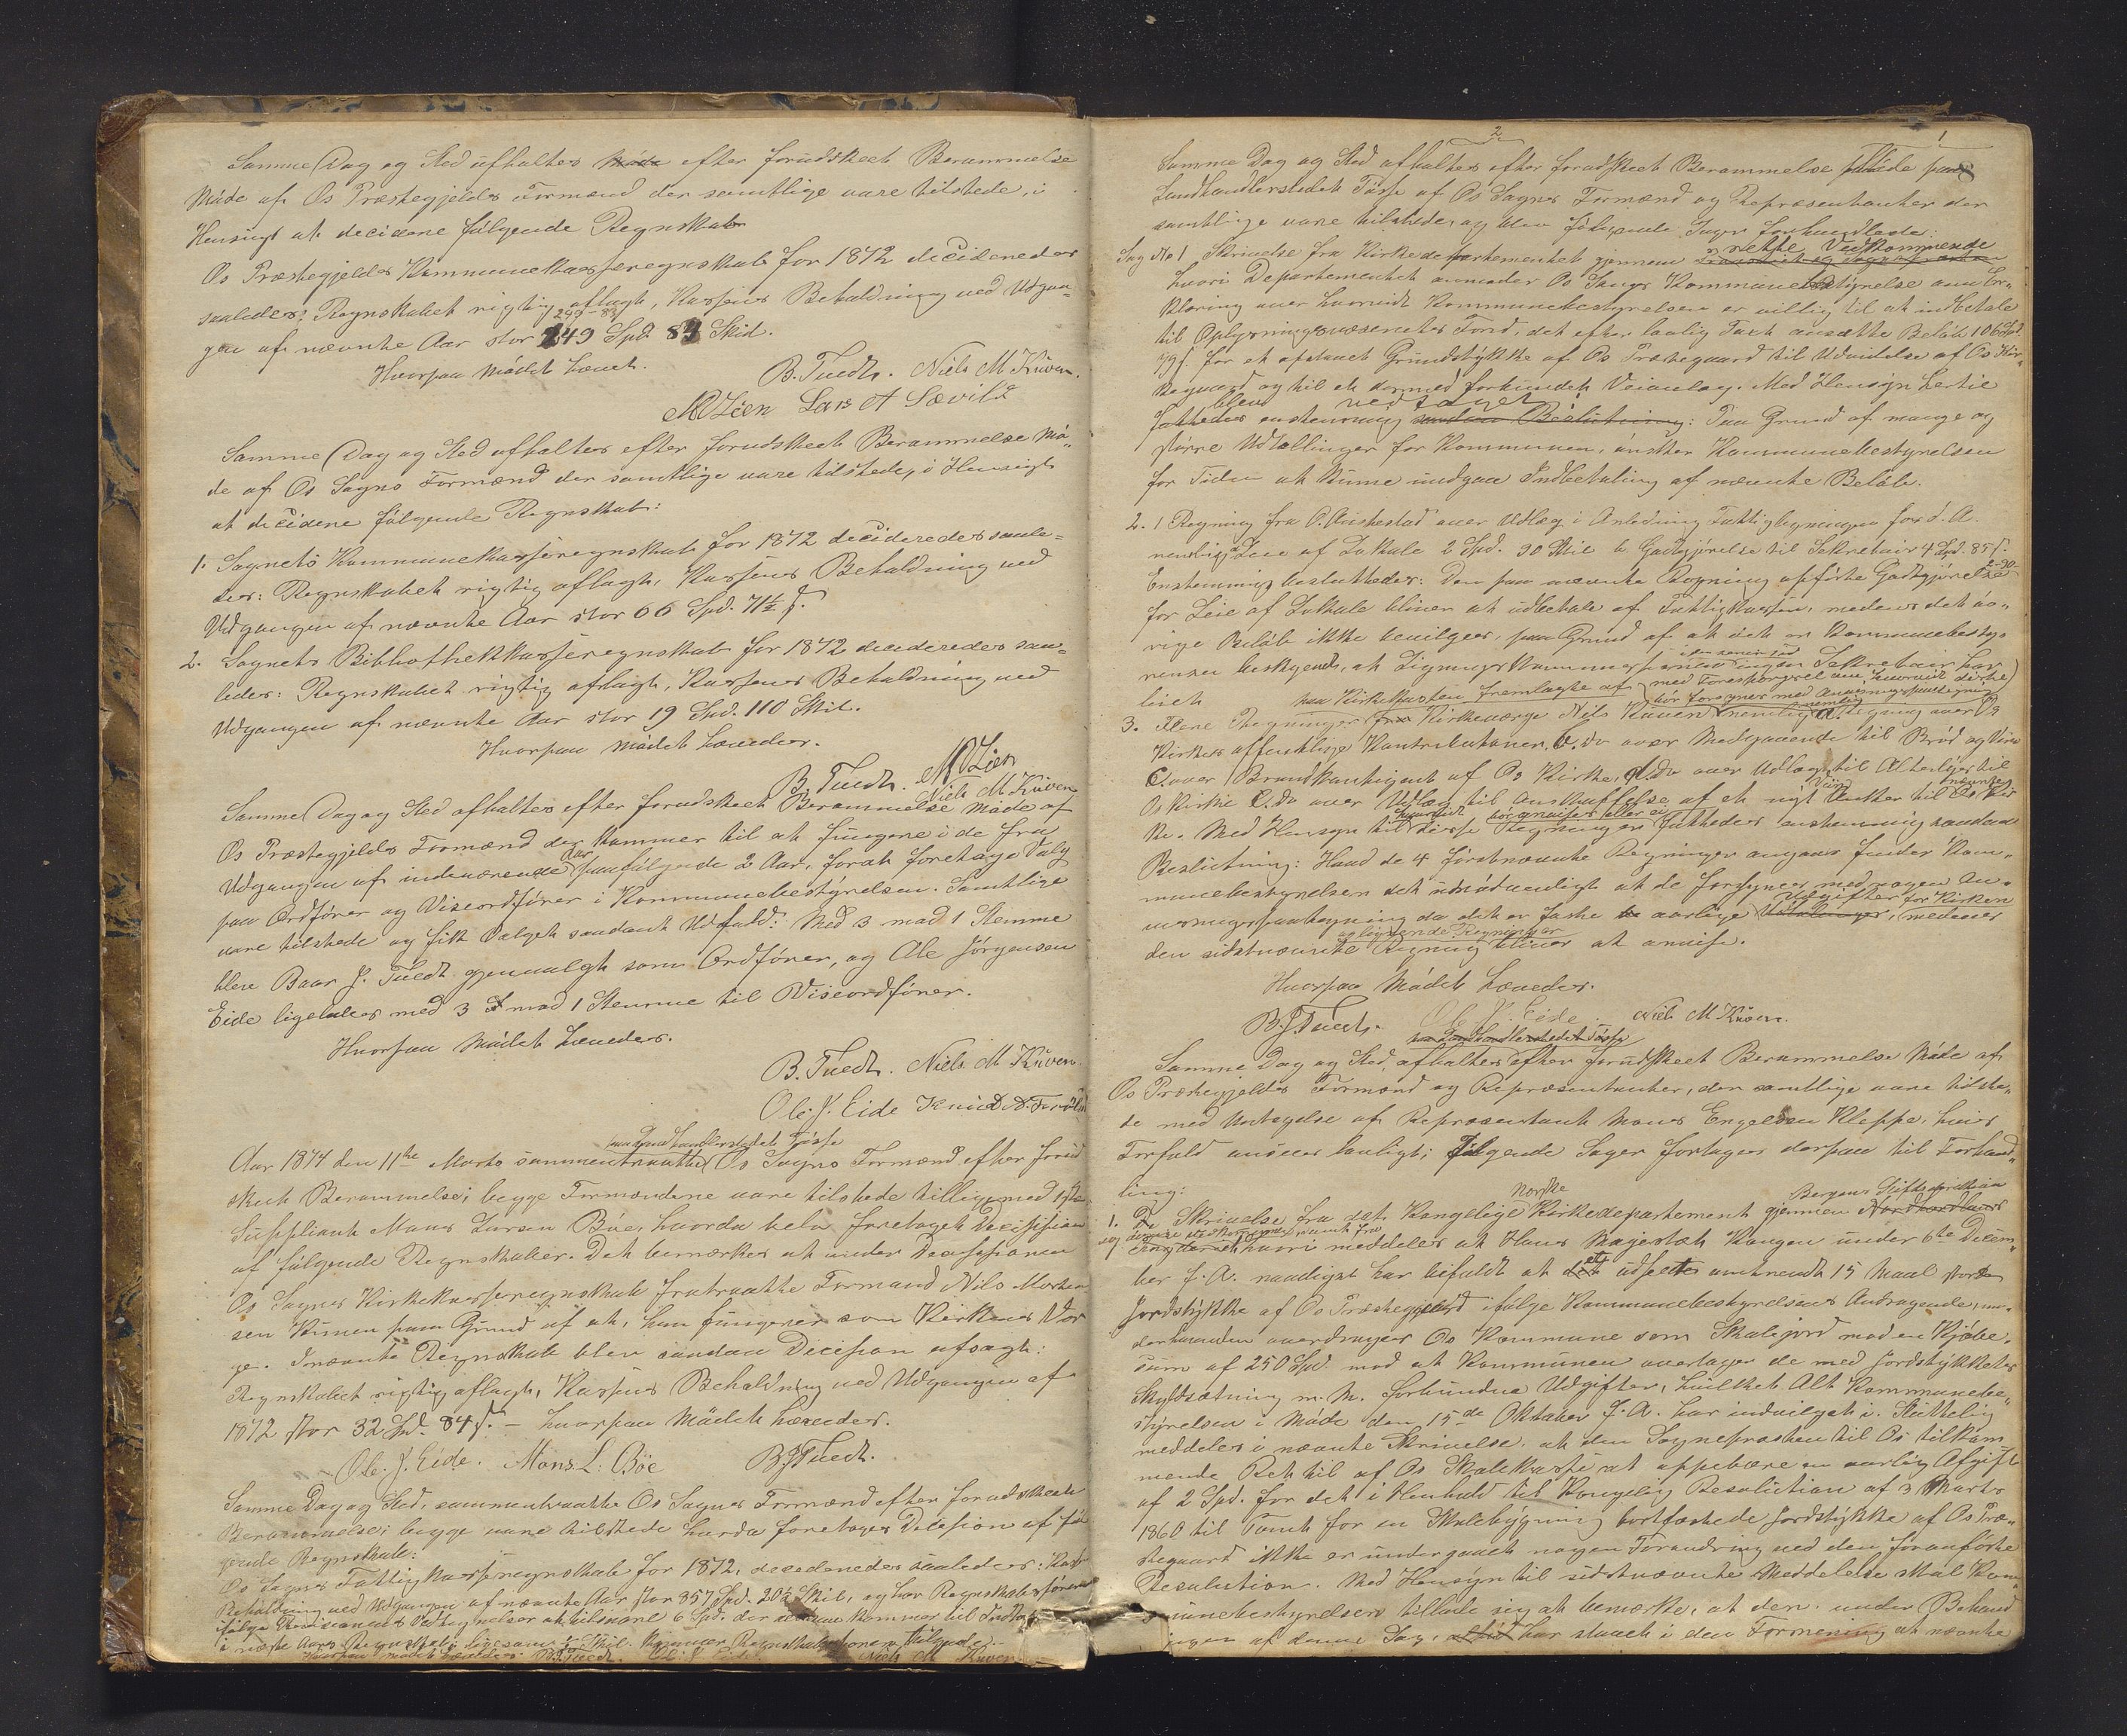 Samme Dag og Sted afholtes Møde efter forudskeet Berammelse
Møde af Os Præstegjelds Formænd der samtlige vare tilstede, i
Hensigt at decidere følgende Regnskab
Os Præstegjelds Kommunekasseregnskab for 1872 decideredes
saaledes: Regnskabet rigtig aflagt, Kassens Beholdning ved Udgan„
249-83
gen af nævnte Aar stor 249 Spd. 83 Skil.
Hvorpaa Mødet hævet.
B. Tuedt. Niels M Kuven.
Lien Lars A Sævild
Samme Dag og Sted afholtes efter forudskeet Berammelse Mø„
de af Os Sogns Formænd der samtlige vare tilstede, i Hensigt
at decidere følgende Regnskab:
1. Sognets Kommunekasseregnskab for 1872 decideredes saale=
des: Regnskabet rigtig aflagt, Kassens Beholdning ved
Udgangen af nævnte Aar stor 66 Spd. 71½ s.
2. Sognets Bibliothekkasseregnskab for 1872 decideredes saa=
ledes: Regnskabet rigtig aflagt, Kassens Beholdning ved
Udgangen af nævnte Aar stor 19 Spd. 110 Skil.
Hvorpaa Mødet hævedes.
B. Tuedt. Lien
Niels M. Kuven
Samme Dag og Sted afholtes efter forudskeet Berammelse Møde af
Os Præstegjelds Formænd der kommer til at fungere i de fra
Udgangen af indeværende Aar paafølgende 2 Aar, forat foretage Valg
paa Ordfører og Viseordfører i Kommunebestyrelsen. Samtlige
vare tilstede og fik Valget saadant Udfald: Med 3 mod 1 Stemme
blev Baar J. Tuedt gjenvalgt som Ordfører, og Ole Jørgensen
Eide ligeledes med 3 mod 1 Stemme til Viseordfører.
Hvorpaa Mødet hævedes.
B. Tuedt. Niels M Kuven.
Ole. J. Eide Knud
paa Landhandlerstedet Øsøse
Aar 1874 den 11te Marts sammentraadte Os Sogns Formænd efter forud
skeet Berammelse; begge Formændene vare tilstede tilligemed 1ste
Suppliant Mons Larsen Bøe, hvorda blev foretaget Decission
af følgende Regnskaber. Det bemærkes at under Decissionen
Os Sogns Kirkekasseregnskab fratraadte Formand Nils Morten
sen Kuven paa Grund af at, han fungerer som Kirkens Vær
ge. Inævnte Regnskab blev saadan Dicision afsagt:
Regnskabet rigtig aflagt, Kassens Beholdning ved Udgangen af
1872 stor 32 Spd. 84 s. – hvorpaa Mødet hævedes.
Ole. J. Eide. Mons. L. Bøe B J Tuedt.
Samme Dag og Sted, sammentraadte Os Sogns Formænd efter forudskeet
Berammelse; begge vare tilstede hvorda foretoges Decision af føl
gende Regnskab:
Os Sogns Fattigkasseregnskab for 1872, decideredes saaledes: Kass
Beholdning ved Udgangen af nævnte Aar stor 357 Spd. 20½ Skil, og har Regnskabsføreren
ifølge Revisionens Vedtegnelser at tilsvare 6 Spd. der kommer til Indtægt
i næste Aars Regnskab, ligesom Skil. kommer Regnskabsføreren tilgode.
Hvorpaa Mødet hævedes. B J Tuedt. Niels M Kuven
2
1
8
Samme Dag og Sted afholtes efter forudskeet Berammelse Møde paa
Landhandlerstedet Øsøse af Os Sogns Formænd og Repræsentanter der
samtlige vare tilstede, og blev følgende Sager forhandlede:
rette Vedkommende
Sag No 1 Skrivelse fra Kirkedepartementet gjennem
hvori Departementet anmoder Os Sogns Kommunebestyrelse om Er„
klæring over hvorvidt Kommunebestyrelsen er villig til at indbetale
til Oplysningsvæsenets Fond, det efter lovlig Taxt ansatte Beløb 106 Spd.
79 s. for et afstaaet Grundstykke af Os Præstegaard til Udvidelse af Os Kir„
kegaard og til et dermed forbundet Veianlæg. Med Hensyn hertil
blev vedtaget:
fattedes enstemmig saadan Beslutning: Paa Grund af mange og
større Udtællinger for Kommunen, ønsker Kommunebestyrelsen
for Tiden at kunne undgaa Indbetaling af nævnte Beløb.
2. 1 Regning fra O. Ørskestad over Udlæg i Anledning Fattigligningen for d. A.
nemlig a Leie af Lokale 2 Spd. 90 Skil b Godtgjørelse til Sekretair 4 Spd. 85 s.
Enstemmig besluttedes: Den paa nævnte Regning opførte Godtgjørelse 2-90
for Leie af Lokale bliver at udbetale af Fattigkassen, medens det øv„
rige Beløb ikke bevilges, paa Grund af at det er Kommunebesty„
relsen bekjendt, at Ligningskommissionen ingen Sekretair har
leiet
paa Kirkekassen fremlagte af med Forespørgsel om hvorvidt disse
bør forsynes med Anvisningspaategning
3. Flere Regninger fra Kirkeværge Nils Kuven nemlig a Regning over Os
Kirkes offentlige Kontributioner, b. do over Medgaaende til Brød og Vin
c. over Brandkontigent af Os Kirke, d. do over Udlæg til Alterlys til
Os Kirke e. do over Udlæg til Anskaffelse af et nyt Vin Anker til nævnte Kir
ke. Med Hensyn til hvorvidt disse Regninger bør anvises eller ei fattedes enstemmig saadan
Beslutning: Hvad de 4 førstnævnte Regninger angaar finder Kom„
munebestyrelsen det unødvendigt at de forsynes med nogen An„
visningspaategning da det er faste aarlige Udgifter for Kirken, medens
og lignende Regninger
den sidstnævnte Regning bliver at anvise.
Hvorpaa Mødet hævedes.
B. J. Tuedt. Ole. J. Eide. Niels M Kuven.
paa Landhandlerstedet Øsøse
Samme Dag og Sted, afholtes efter forudskeet Berammelse Møde af
Os Præstegjelds Formænd og Repræsentanter, der samtlige vare tilste„
de med Undtagelse af Repræsentant Mons Engelsen Kleppe, hvis
Forfald ansees lovligt; følgende Sager foretages derpaa til Forhand„
ling:
norske Bergens Stiftsdirektion
1. Skrivelse fra det Kongelige Kirkedepartement gjennem Nordhordlands
hvori meddeles at Hans Majestæt Kongen under 6te Decem„
ber f. A. naadigst har bifaldt at et udseet omtrendt 15 Maal stort
Jordstykke af Os Præstegjeld ifølge Kommunebestyrelsens Andragende, un„
derhaanden overdrages Os Kommune som Skolejord mod en Kjøbe„
sum af 250 Spd. mod at Kommunen overtager de med Jordstykkets
Skyldsætning m. M. forbundne Udgifter, hvilket Alt Kommunebe„
styrelsen i Møde den 15de Oktober f. A. har indvilget i. Sluttelig
meddeles i nævnte Skrivelse, at den Sognepræsten til Os tilkom„
mende Ret til af Os Skolekasse at oppebære en aarlig Afgift
af 2 Spd. for det i Henhold til Kongelig Resolution af 3 Marts
1860 til Tomt for en Skolebygning bortfæstede Jordstykke af Os Præ„
stegaard ikke er undergaaet nogen Forandring ved den foranførte
Resolution. Med Hensyn til sidstnævnte Meddelelse skal Kom„
munebestyrelsen tillade sig at bemærke, at den under Behand
lingen af denne Sag, altid har staaet i den Formening at nævnte